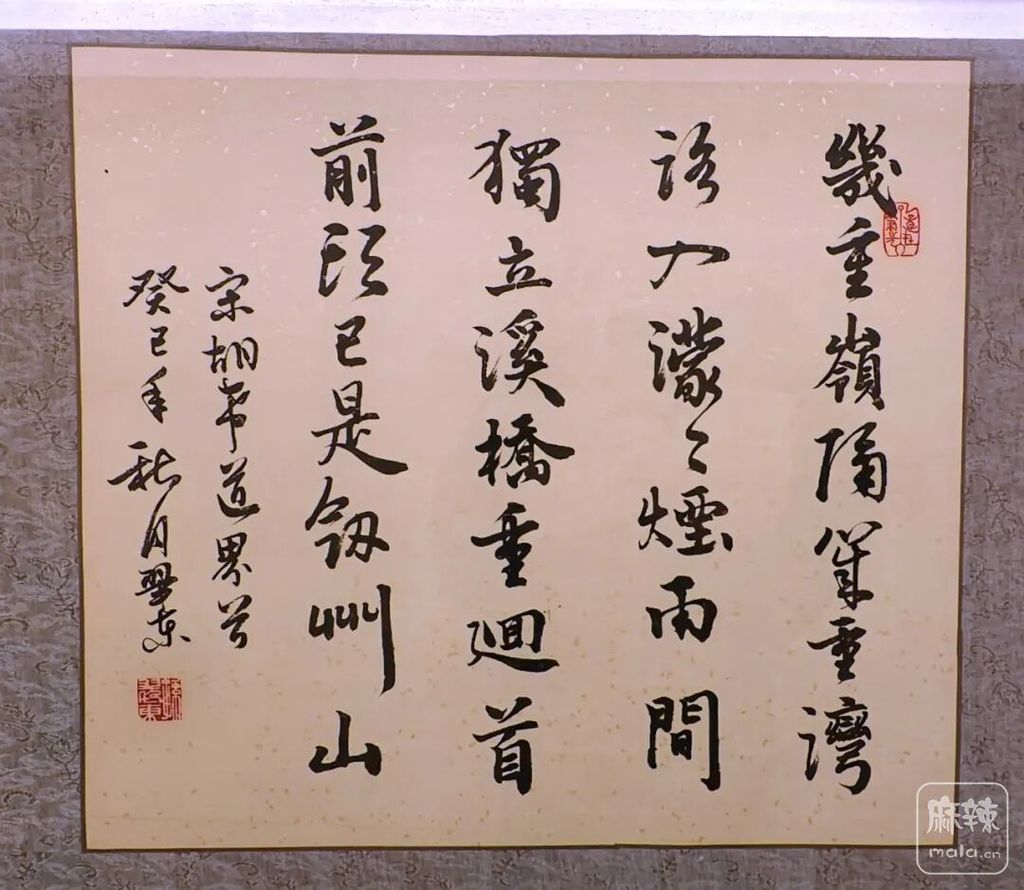 幾重嶺隔幾重灣
路入濛〻煙雨間
獨立溪橋重迴首
前頭已是劔州山
宋胡希道界首
癸巳年秋月
麻辣
mala.cn